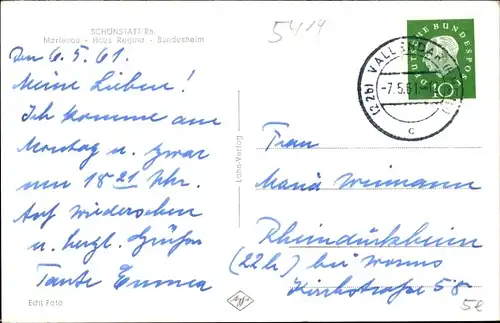 SCHÖNSTATT/Rh.
Marienau - Haus Regina - Bundesheim
Den 6.5.61.
Meine Lieben!
Ich komme am
Montag u. zwar
um 18 21 Uhr.
Auf Wiedersehen
u. herzl. Grüße
Tante Emma
Echt Foto
Lahn-Verlag
Agfa
5414
DEUTSCHE BUNDESPOST
10
(22b) VALLENDAR
-7.5.61.-
c
Frau
Maria Weimann
Rheindürkheim
(22b) bei Worms
Kirchstraße 58
5€